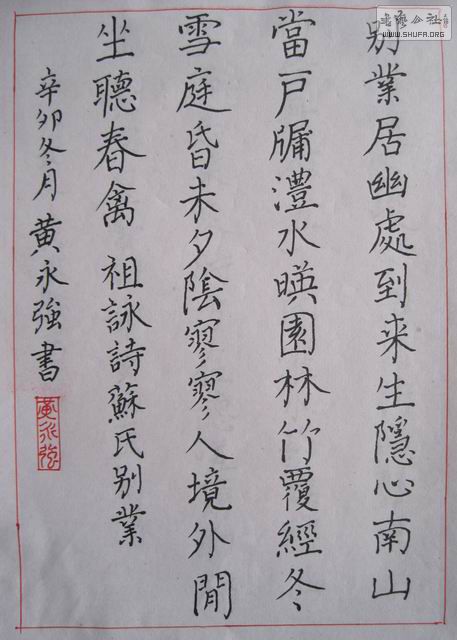 別業居幽處到来生隱心南山
當戶牖澧水暎園林竹覆經冬
雪庭昏未夕陰寥寥人境外閒
坐聽春禽 祖詠詩蘇氏别業
辛卯冬月 黄永強書
黄永強
書藝公社
WWW.SHUFA.ORG